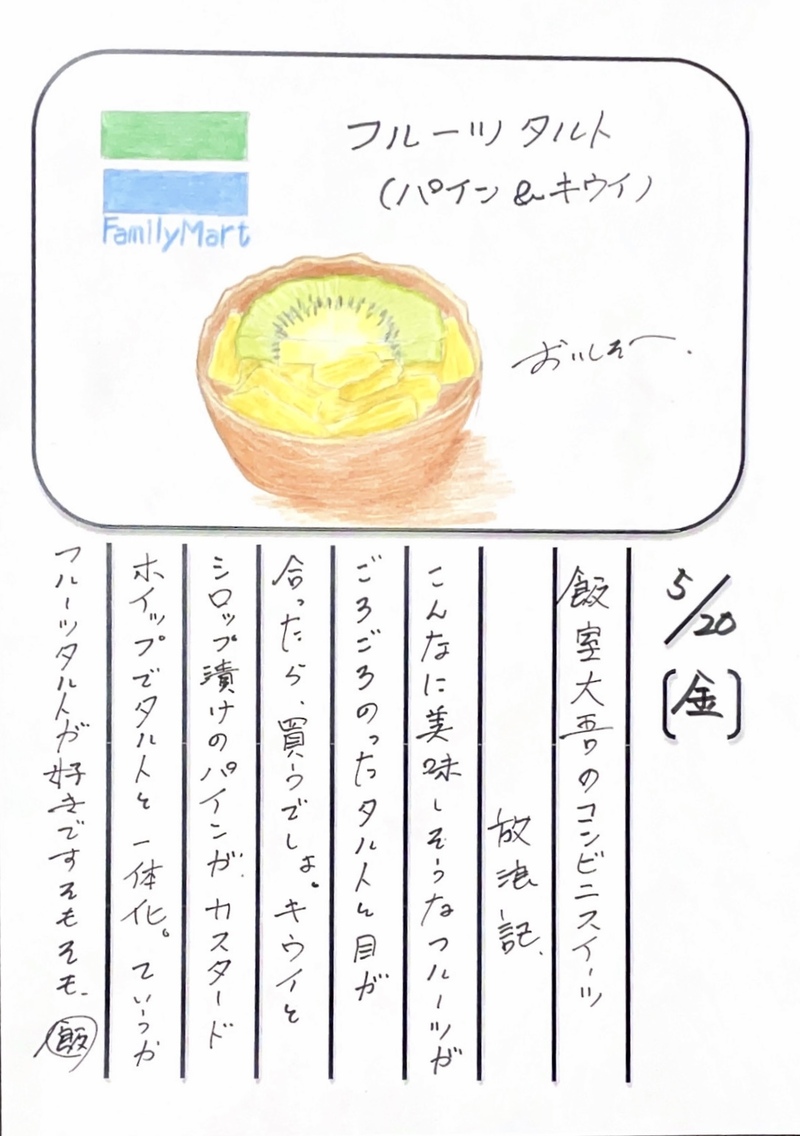 FamilyMart
フルーツタルト
(パイン&キウイ)
おいしそー.
5/20
[金]
飯室大吾のコンビニスイーツ
放浪記.
こんなに美味しそうなフルーツが
ごろごろのったタルトと目が
合ったら、買うでしょ。キウイと
シロップ漬けのパインが、カスタード
ホイップでタルトと一体化。ていうか
フルーツタルトが好きですそもそも。
飯